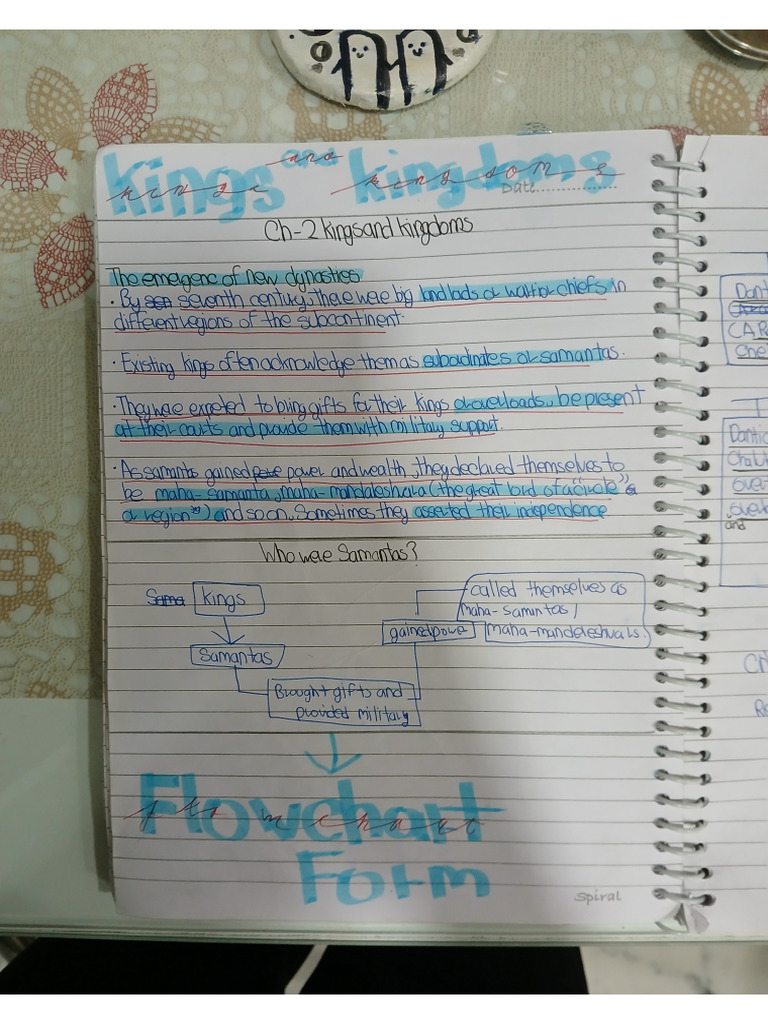 kings and kingdoms
kings and kingdoms
Date
Ch-2 kings and kingdoms
The emergenc of new dynasties
· By seventh century, there were big landlads or warrior chiefs in
different regions of the subcontinent.
· Existing kings often acknowledge them as subordinates or samantas.
· They were expected to bring gifts for their kings or overloads, be present
at their courts and provide them with military support.
· As samanta gained power and wealth, they declared themselves to
be maha-samanta, maha-mandaleshvara (the great lord of a "circle"
a region") and so on. Sometimes they asserted their independence
Who were Samantas?
Sama Kings
Samantas
Brought gifts and
provided military
gained power
called themselves as
maha-samntas,
maha-mandeleshvals.
Flowchart
flowchart
Form
Spiral
Danti
CAR
Che
Dantic
Chalu
over
over
and